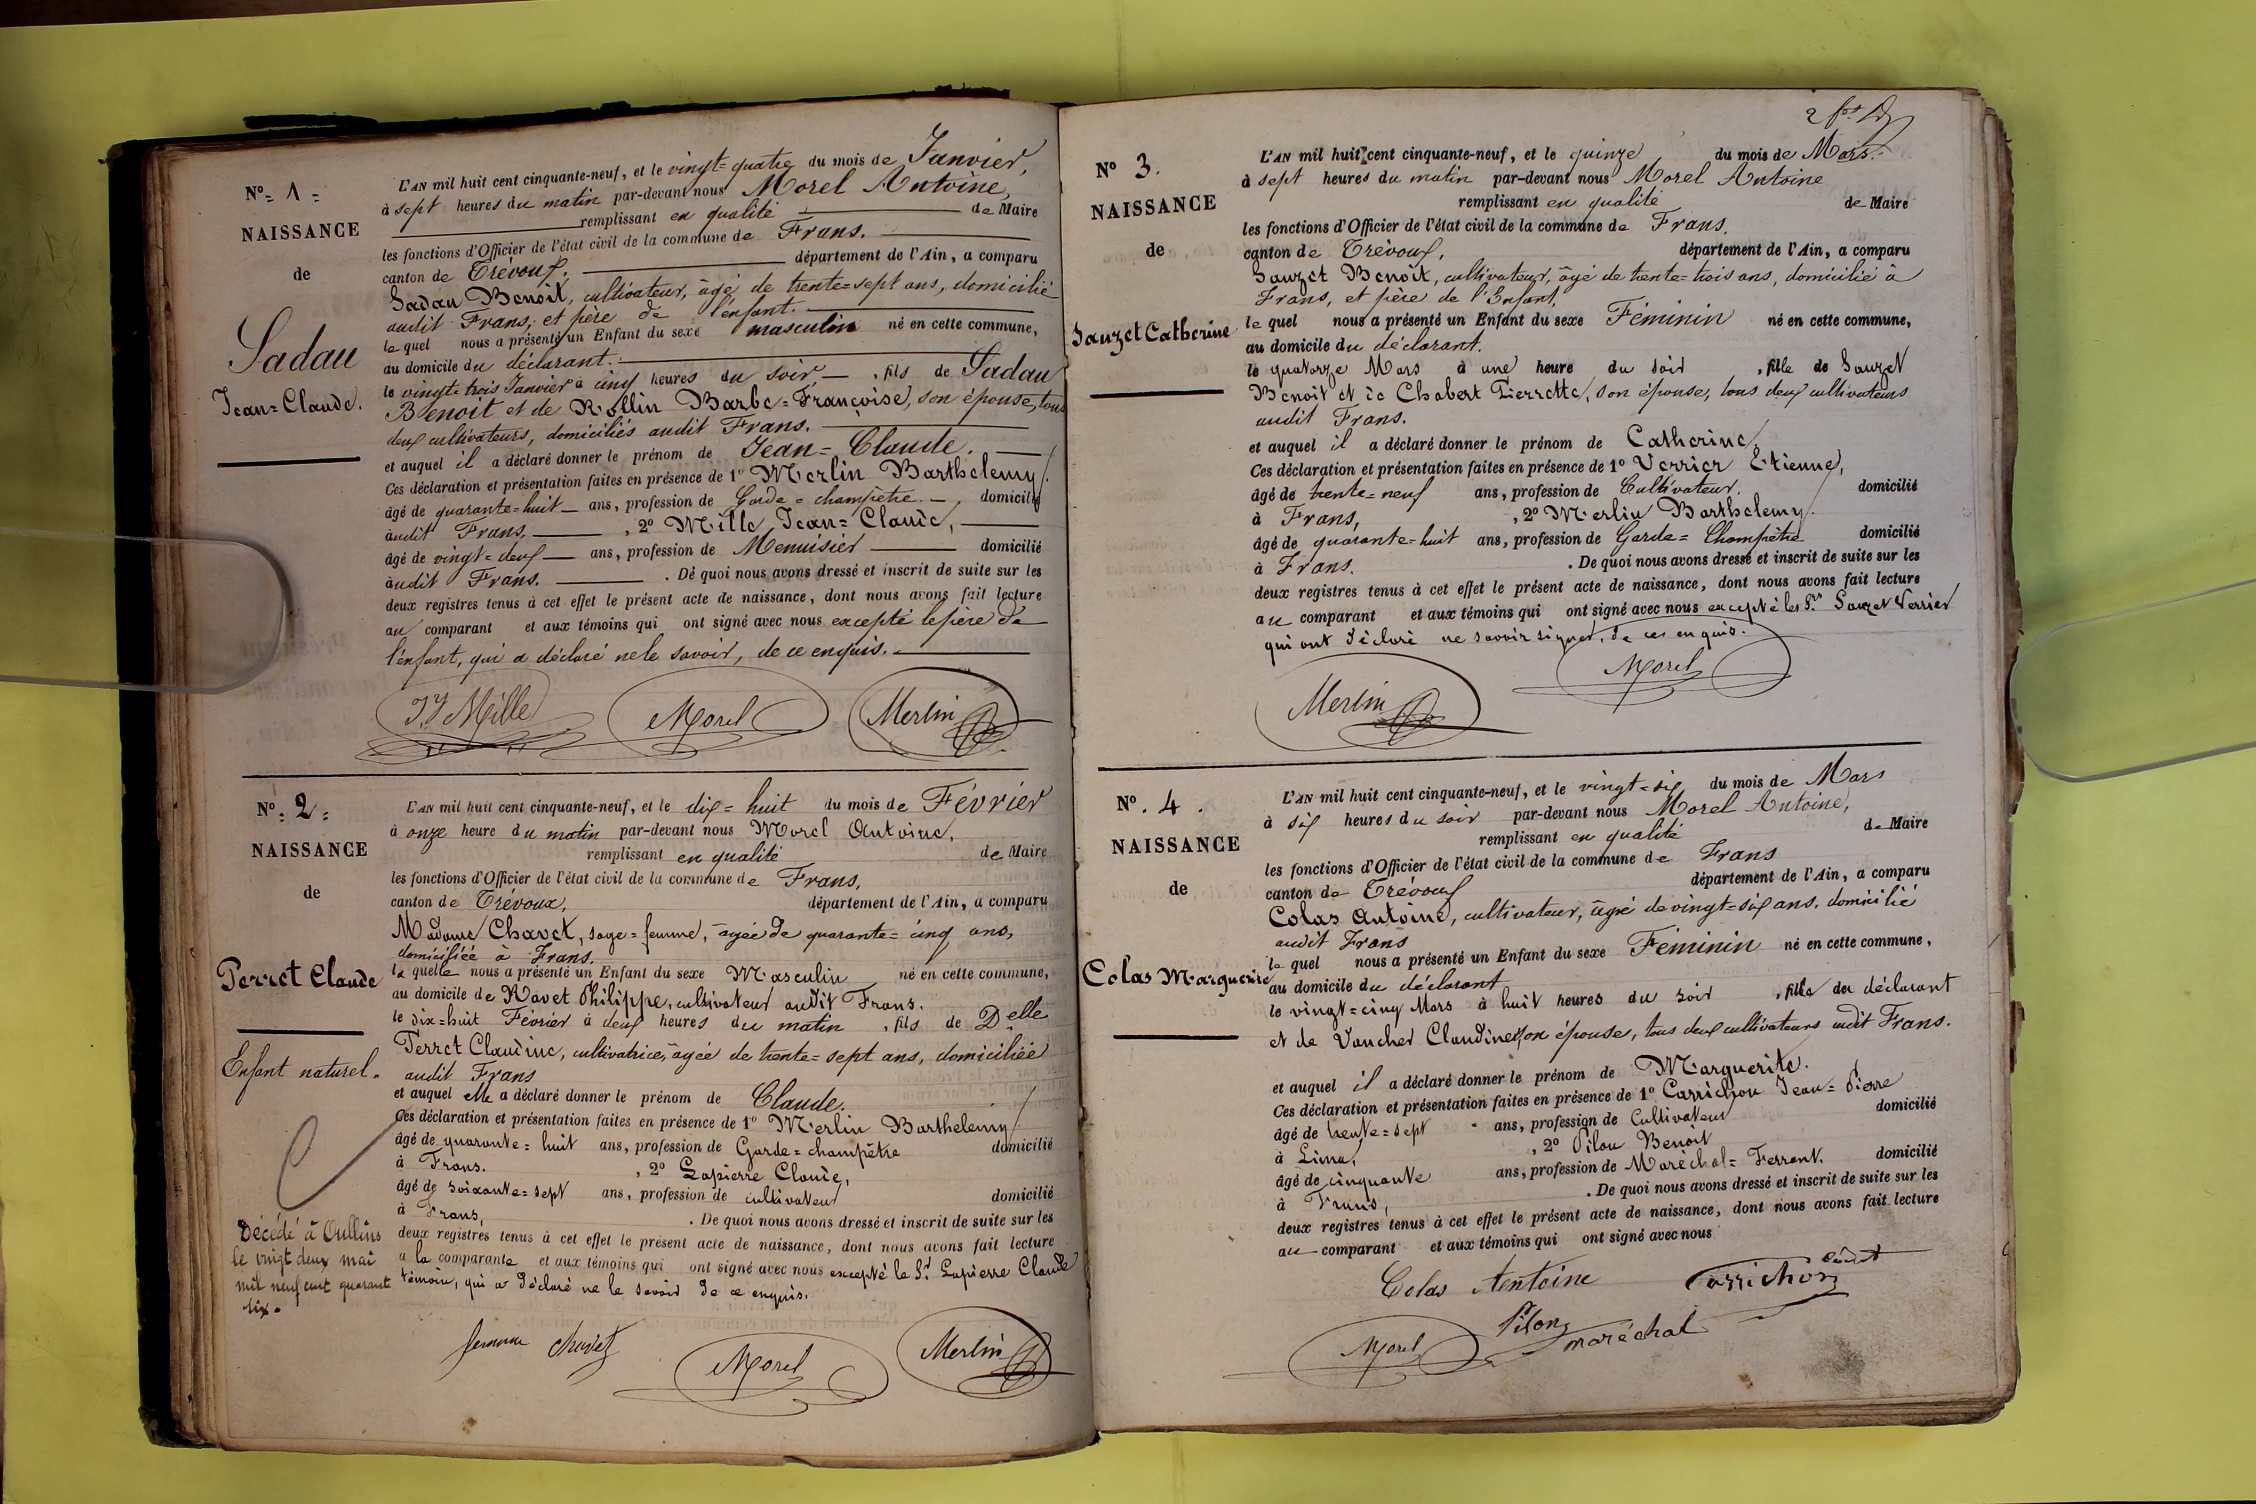 N°= 1 =
NAISSANCE
de
Sadau
Jean=Claude.
L'AN mil huit cent cinquante-neuf, et le vingt=quatre du mois de Janvier,
à sept heures du matin par-devant nous Morel Antoine,
remplissant en qualité de Maire
les fonctions d'Officier de l'état civil de la commune de Frans.
canton de Trévoux. département de l'Ain, a comparu
Sadau Benoît, cultivateur, âgé de trente=sept ans, domicilié
audit Frans, et père de l'enfant.
lequel nous a présenté un Enfant du sexe masculin né en cette commune,
au domicile du déclarant.
le vingt-trois Janvier à cinq heures du soir, fils de Sadau
Benoit et de Rollin Barbe=Françoise, son épouse, tous
deux cultivateurs, domiciliés audit Frans.
et auquel il a déclaré donner le prénom de Jean=Claude.
Ces déclaration et présentation faites en présence de 1° Merlin Barthelemy
âgé de quarante=huit ans, profession de Garde=champêtre, domicilié
audit Frans, , 2° Mille Jean=Claude,
âgé de vingt=deux ans, profession de Menuisier domicilié
audit Frans. . De quoi nous avons dressé et inscrit de suite sur les
deux registres tenus à cet effet le présent acte de naissance, dont nous avons fait lecture
au comparant et aux témoins qui ont signé avec nous excepté le père de
l'enfant, qui a déclaré ne le savoir, de ce enquis.
Mille Morel Merlin
N°: 2 :
NAISSANCE
de
Perret Claude
Enfant naturel.
Décédé à Oullins
le vingt deux mai
mil neuf cent quarant
six.
L'AN mil huit cent cinquante-neuf, et le dix=huit du mois de Février
à onze heure du matin par-devant nous Morel Antoine,
remplissant en qualité de Maire
les fonctions d'Officier de l'état civil de la commune de Frans,
canton de Trévoux, département de l'Ain, a comparu
Madame Chavet, sage=femme, âgée de quarante=cinq ans,
domiciliée à Frans.
laquelle nous a présenté un Enfant du sexe Masculin né en cette commune,
au domicile de Ravet Philippe, cultivateur audit Frans.
le dix=huit Février à deux heures du matin , fils de Delle
Perret Claudine, cultivatrice, âgée de trente=sept ans, domiciliée
audit Frans
et auquel elle a déclaré donner le prénom de Claude.
Ces déclaration et présentation faites en présence de 1° Merlin Barthelemy
âgé de quarante=huit ans, profession de Garde=champêtre domicilié
à Frans. , 2° Lapierre Claude,
âgé de soixante=sept ans, profession de cultivateur domicilié
à Frans, . De quoi nous avons dressé et inscrit de suite sur les
deux registres tenus à cet effet le présent acte de naissance, dont nous avons fait lecture
a la comparante et aux témoins qui ont signé avec nous excepté le Sr Lapierre Claude
témoin, qui a déclaré ne le savoir de ce enquis.
femme chavet Morel Merlin
N° 3.
NAISSANCE
de
Sauzet Catherine
L'AN mil huit cent cinquante-neuf, et le quinze du mois de Mars.
à sept heures du matin par-devant nous Morel Antoine
remplissant en qualité de Maire
les fonctions d'Officier de l'état civil de la commune de Frans.
canton de Trévoux, département de l'Ain, a comparu
Sauzet Benoît, cultivateur, âgé de trente=trois ans, domicilié à
Frans, et père de l'Enfant.
lequel nous a présenté un Enfant du sexe Féminin né en cette commune,
au domicile du déclarant.
le quatorze Mars à une heure du soir , fille de Sauzet
Benoit et de Chabert Pierrette, son épouse, tous deux cultivateurs
audit Frans.
et auquel il a déclaré donner le prénom de Catherine,
Ces déclaration et présentation faites en présence de 1° Verrier Etienne,
âgé de trente=neuf ans, profession de Cultivateur. domicilié
à Frans, , 2° Merlin Barthelemy
âgé de quarante=huit ans, profession de Garde=Champêtre domicilié
à Frans. . De quoi nous avons dressé et inscrit de suite sur les
deux registres tenus à cet effet le présent acte de naissance, dont nous avons fait lecture
au comparant et aux témoins qui ont signé avec nous excepté les Srs Sauzet Verrier
qui ont déclaré ne savoir signer, de ce enquis.
Merlin Morel
N°. 4.
NAISSANCE
de
Colas Marguerite
L'AN mil huit cent cinquante-neuf, et le vingt=six du mois de Mars
à six heures du soir par-devant nous Morel Antoine,
remplissant en qualité de Maire
les fonctions d'Officier de l'état civil de la commune de Frans
canton de Trévoux département de l'Ain, a comparu
Colas Antoine, cultivateur, âgé de vingt=six ans, domicilié
audit Frans
lequel nous a présenté un Enfant du sexe Féminin né en cette commune,
au domicile du déclarant
le vingt=cinq Mars à huit heures du soir , fille du déclarant
et de Vaucher Claudine, son épouse, tous deux cultivateurs audit Frans.
et auquel il a déclaré donner le prénom de Marguerite.
Ces déclaration et présentation faites en présence de 1° Carrichon Jean=Pierre
âgé de trente=sept ans, profession de Cultivateur domicilié
à Lima, , 2° Pilon Benoit
âgé de cinquante ans, profession de Maréchal=Ferrant. domicilié
à Frans, . De quoi nous avons dressé et inscrit de suite sur les
deux registres tenus à cet effet le présent acte de naissance, dont nous avons fait lecture
au comparant et aux témoins qui ont signé avec nous
Colas Antoine Carrichon
Pilon
maréchal
Morel